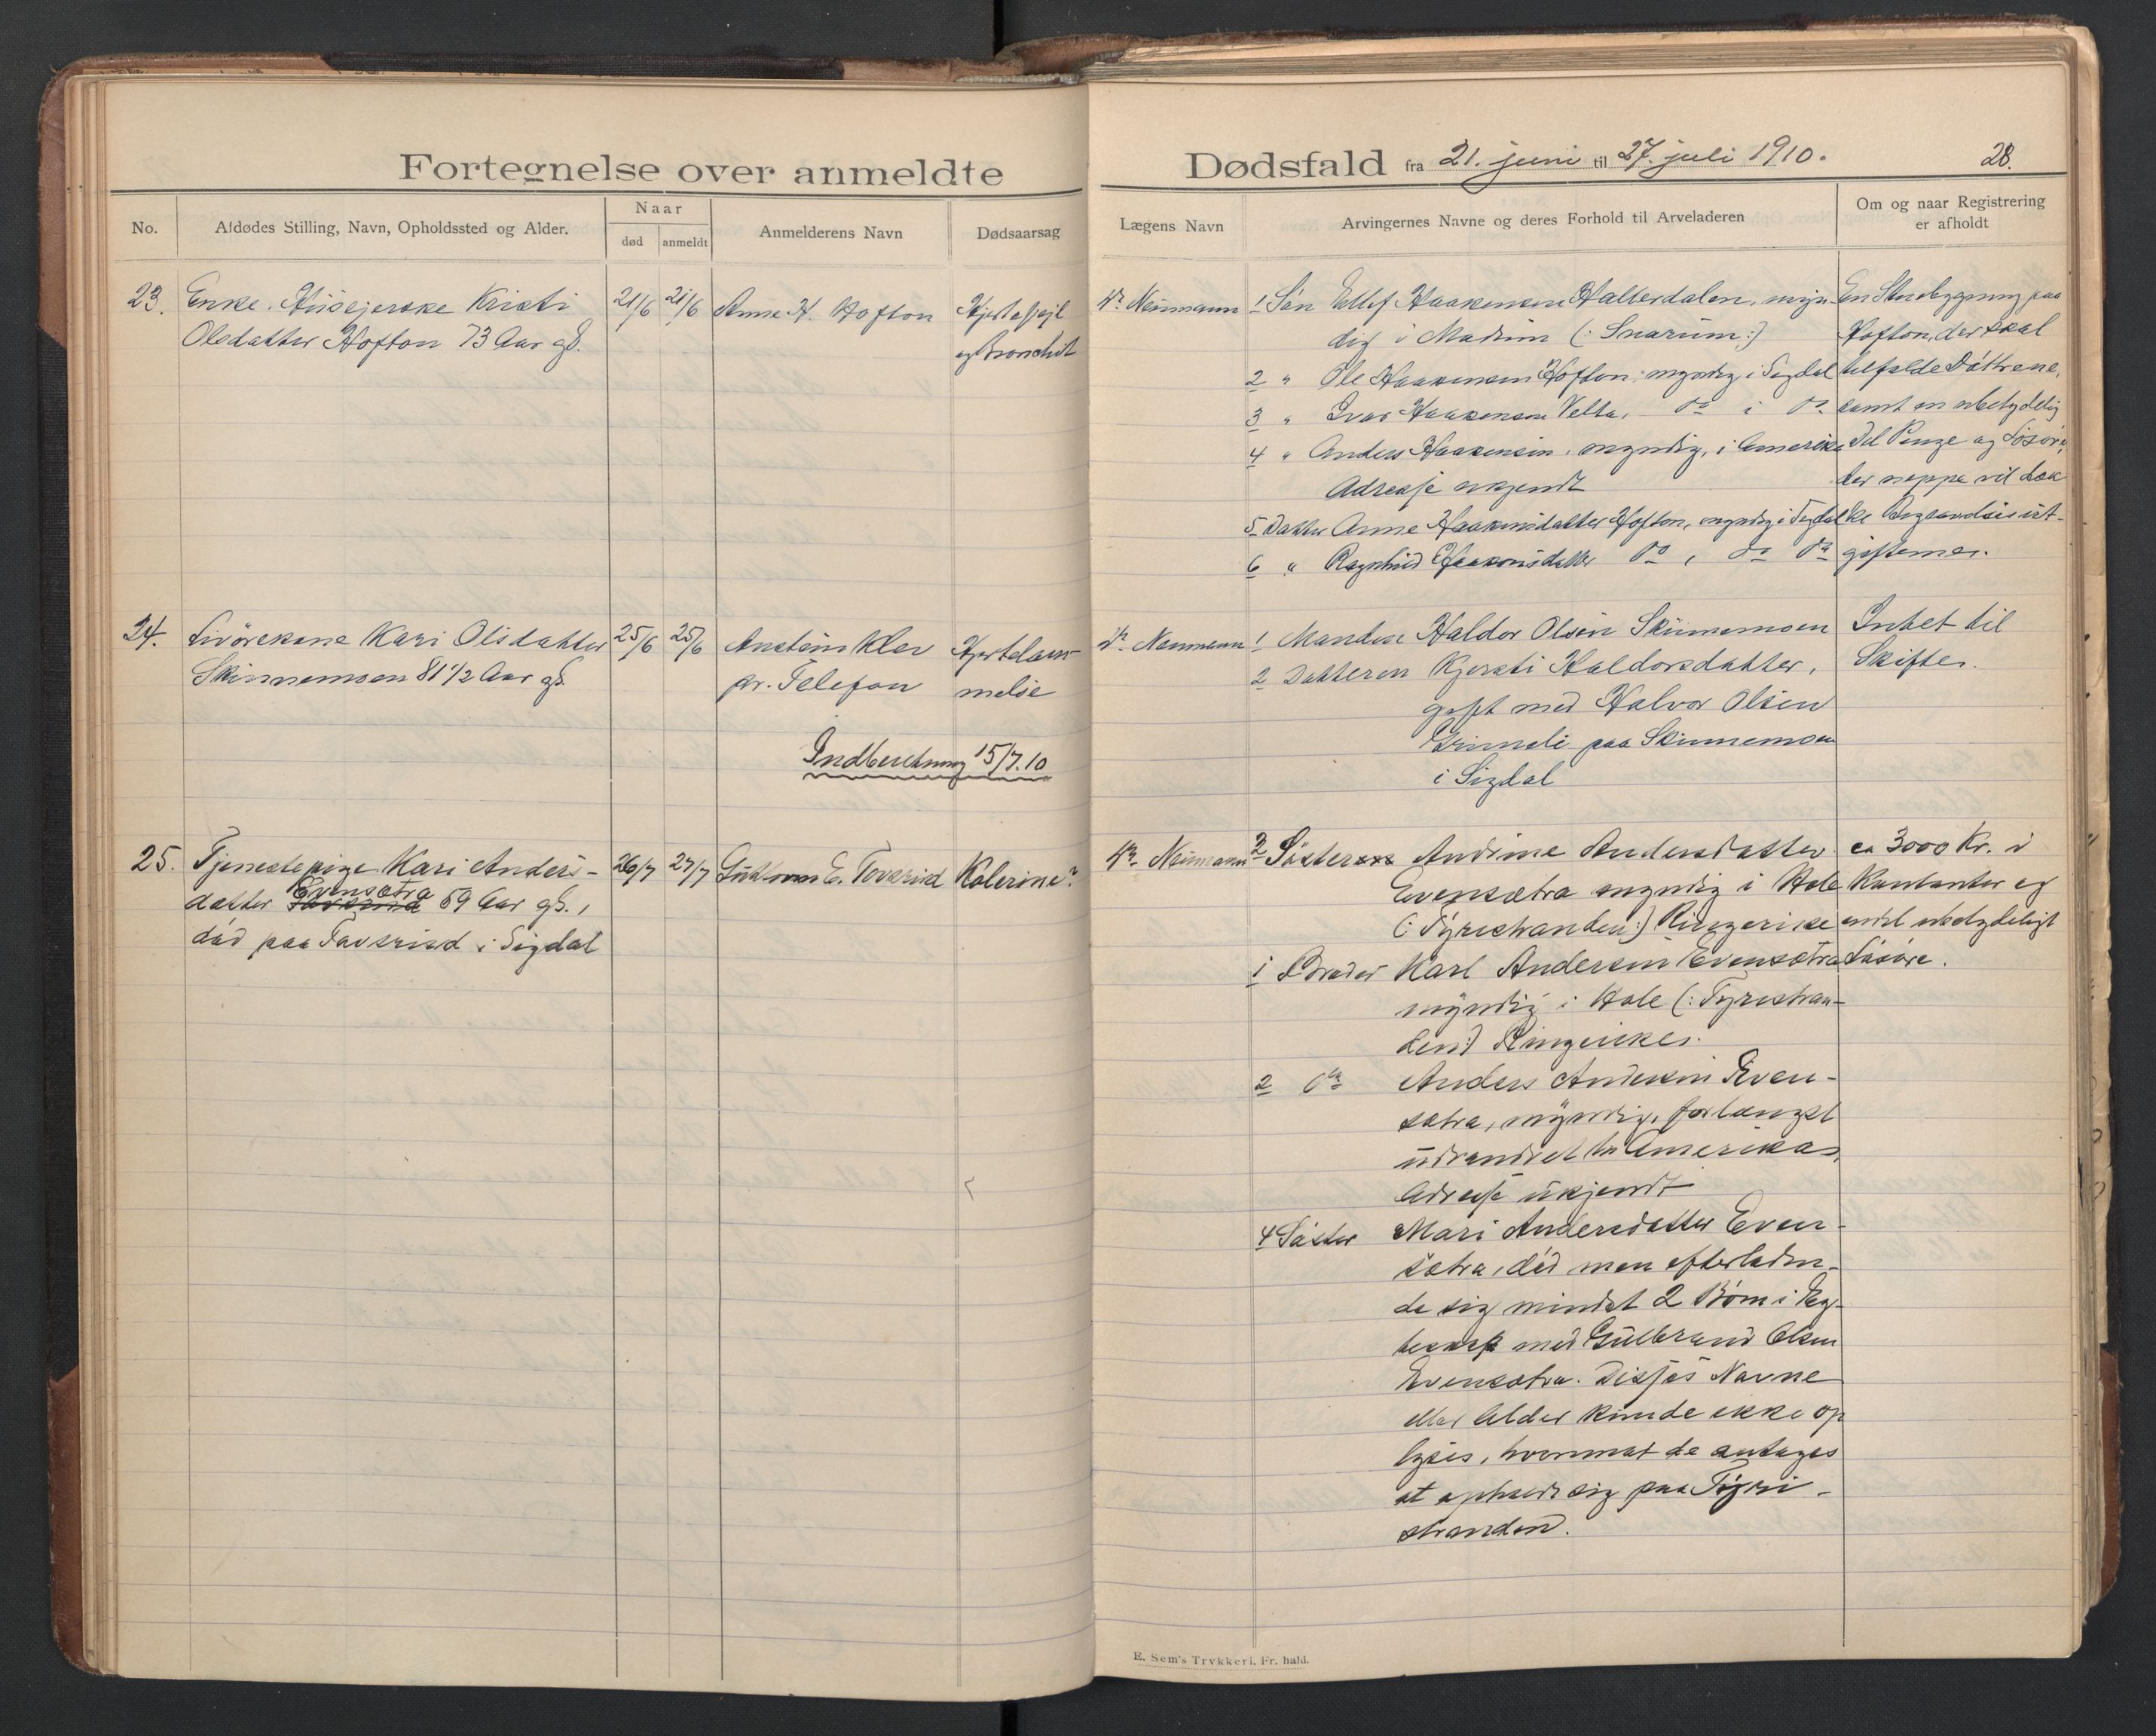 Fortegnelse over anmeldte
No.
Afdødes Stilling, Navn, Opholdssted og Alder.
Naar
død
anmeldt
Anmelderens Navn
Dødsaarsag
23.
Enke. Husejerske Kristi
Olsdatter Hofton 73 Aar gl.
21/6
21/6
Anne H. Hofton
Hjertefejl
og Bronchit
24.
Livørekone Kari Olsdatter
Skinnemoen 81 1/2 Aar gl.
25/6
25/6
Anstein Klev
pr. Telefon
Hjertelam-
melse
Indberetning 15/7.10
25.
Tjenestepige Kari Anders-
datter Evensætra 59 Aar gl.,
død paa Tavsrud i Sigdal
26/7
27/7
E. Tovsrud
Kolerine?
Dødsfald fra 21. juni til 27. juli 1910.
28.
Lægens Navn
Arvingernes Navne og deres Forhold til Arveladeren
Om og naar Registrering
er afholdt
Dr. Neumann
1 Søn Ellef Haakensen Hallerdalen, myn-
dig i Modum (: Snarum:)
2 " Ole Haakensen Hofton, myndig i Sigdal
3 " Ivar Haakensen Velta, do i do
4 " Anders Haakensen, myndig, i Amerika
Adresse ukjendt
5 Datter Anne Haakensdatter Hofton, myndig i Sigdal
6 " Ragnhild Haakonsdatter do, do do
En Stuebygning paa
Hofton, der skal
tilfalde Døttrene,
samt en ubetydelig
Del Penge og Løsøre,
der neppe vil dæk
ke Begravelsesut-
gifterne.
Dr. Neumann
1 Manden Haldor Olsen Skinnemoen
2 Datteren Kjersti Haldorsdatter,
gift med Halvor Olsen
paa Skinnemoen
i Sigdal
Intet til
Skifte.
Dr. Neumann
2 Søster Andrine Andersdatter
Evensætra myndig i Hole
(: Tyristranden:) Ringerike
1 Broder Karl Andersen Evensætra
myndig i Hole (: Tyristran-
den:) Ringerike.
2 do Anders Andersen Even-
sætra, myndig, forlængst
udvandret til Amerika,
Adresse ukjendt
4 Søster Mari Andersdatter Even-
sætra, død men efterladen-
de sig mindst 2 Børn i Eg-
teskap med Gulbrand Olsen
Evensætra. Disses Navne
eller Alder kunde ikke op
lyses, hvornæst de antages
at opholde sig paa Tyri-
stranden.
ca 3000 Kr. i
Kontanter og
endel ubetydeligt
Løsøre.
E. Sem's Trykkeri, Fr. hald.